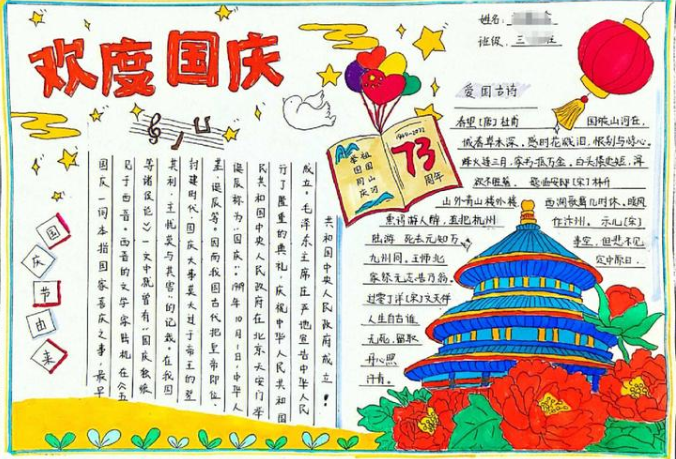 欢度国庆
姓名:
班级: 三
国
庆
节
由
来
国庆一词本指国家喜庆之事,最早
见于西晋。西晋的文学家陆机在《五
等诸侯论》一文中就曾有“国庆独飨
其利,主忧莫与其害”的记载。在我国
封建时代,国庆大事莫大过于帝王的登
基、诞辰等。因而我国古代把皇帝即位、
诞辰称为“国庆”。1949年10月1日,中华人
民共和国中央人民政府在北京天安门举
行了隆重的典礼,庆祝中华人民共和国
成立。毛泽东主席庄严地宣告中华人民
共和国中央人民政府成立!
祖国山河
举国同庆
1949-2022
73
周年
爱国古诗
春望[唐]杜甫 国破山河在,
城春草木深。感时花溅泪,恨别鸟惊心。
烽火连三月,家书抵万金。白头搔更短,浑
欲不胜簪。 题临安邸[宋]林升
山外青山楼外楼 西湖歌舞几时休。暖风
熏得游人醉,直把杭州 作汴州。示儿[宋]
陆游 死去元知万 事空,但悲不见
九州同。王师北 定中原日,
家祭无忘告乃翁。
过零丁洋[宋]文天祥
人生自古谁
无死,留取
丹心照
汗青。